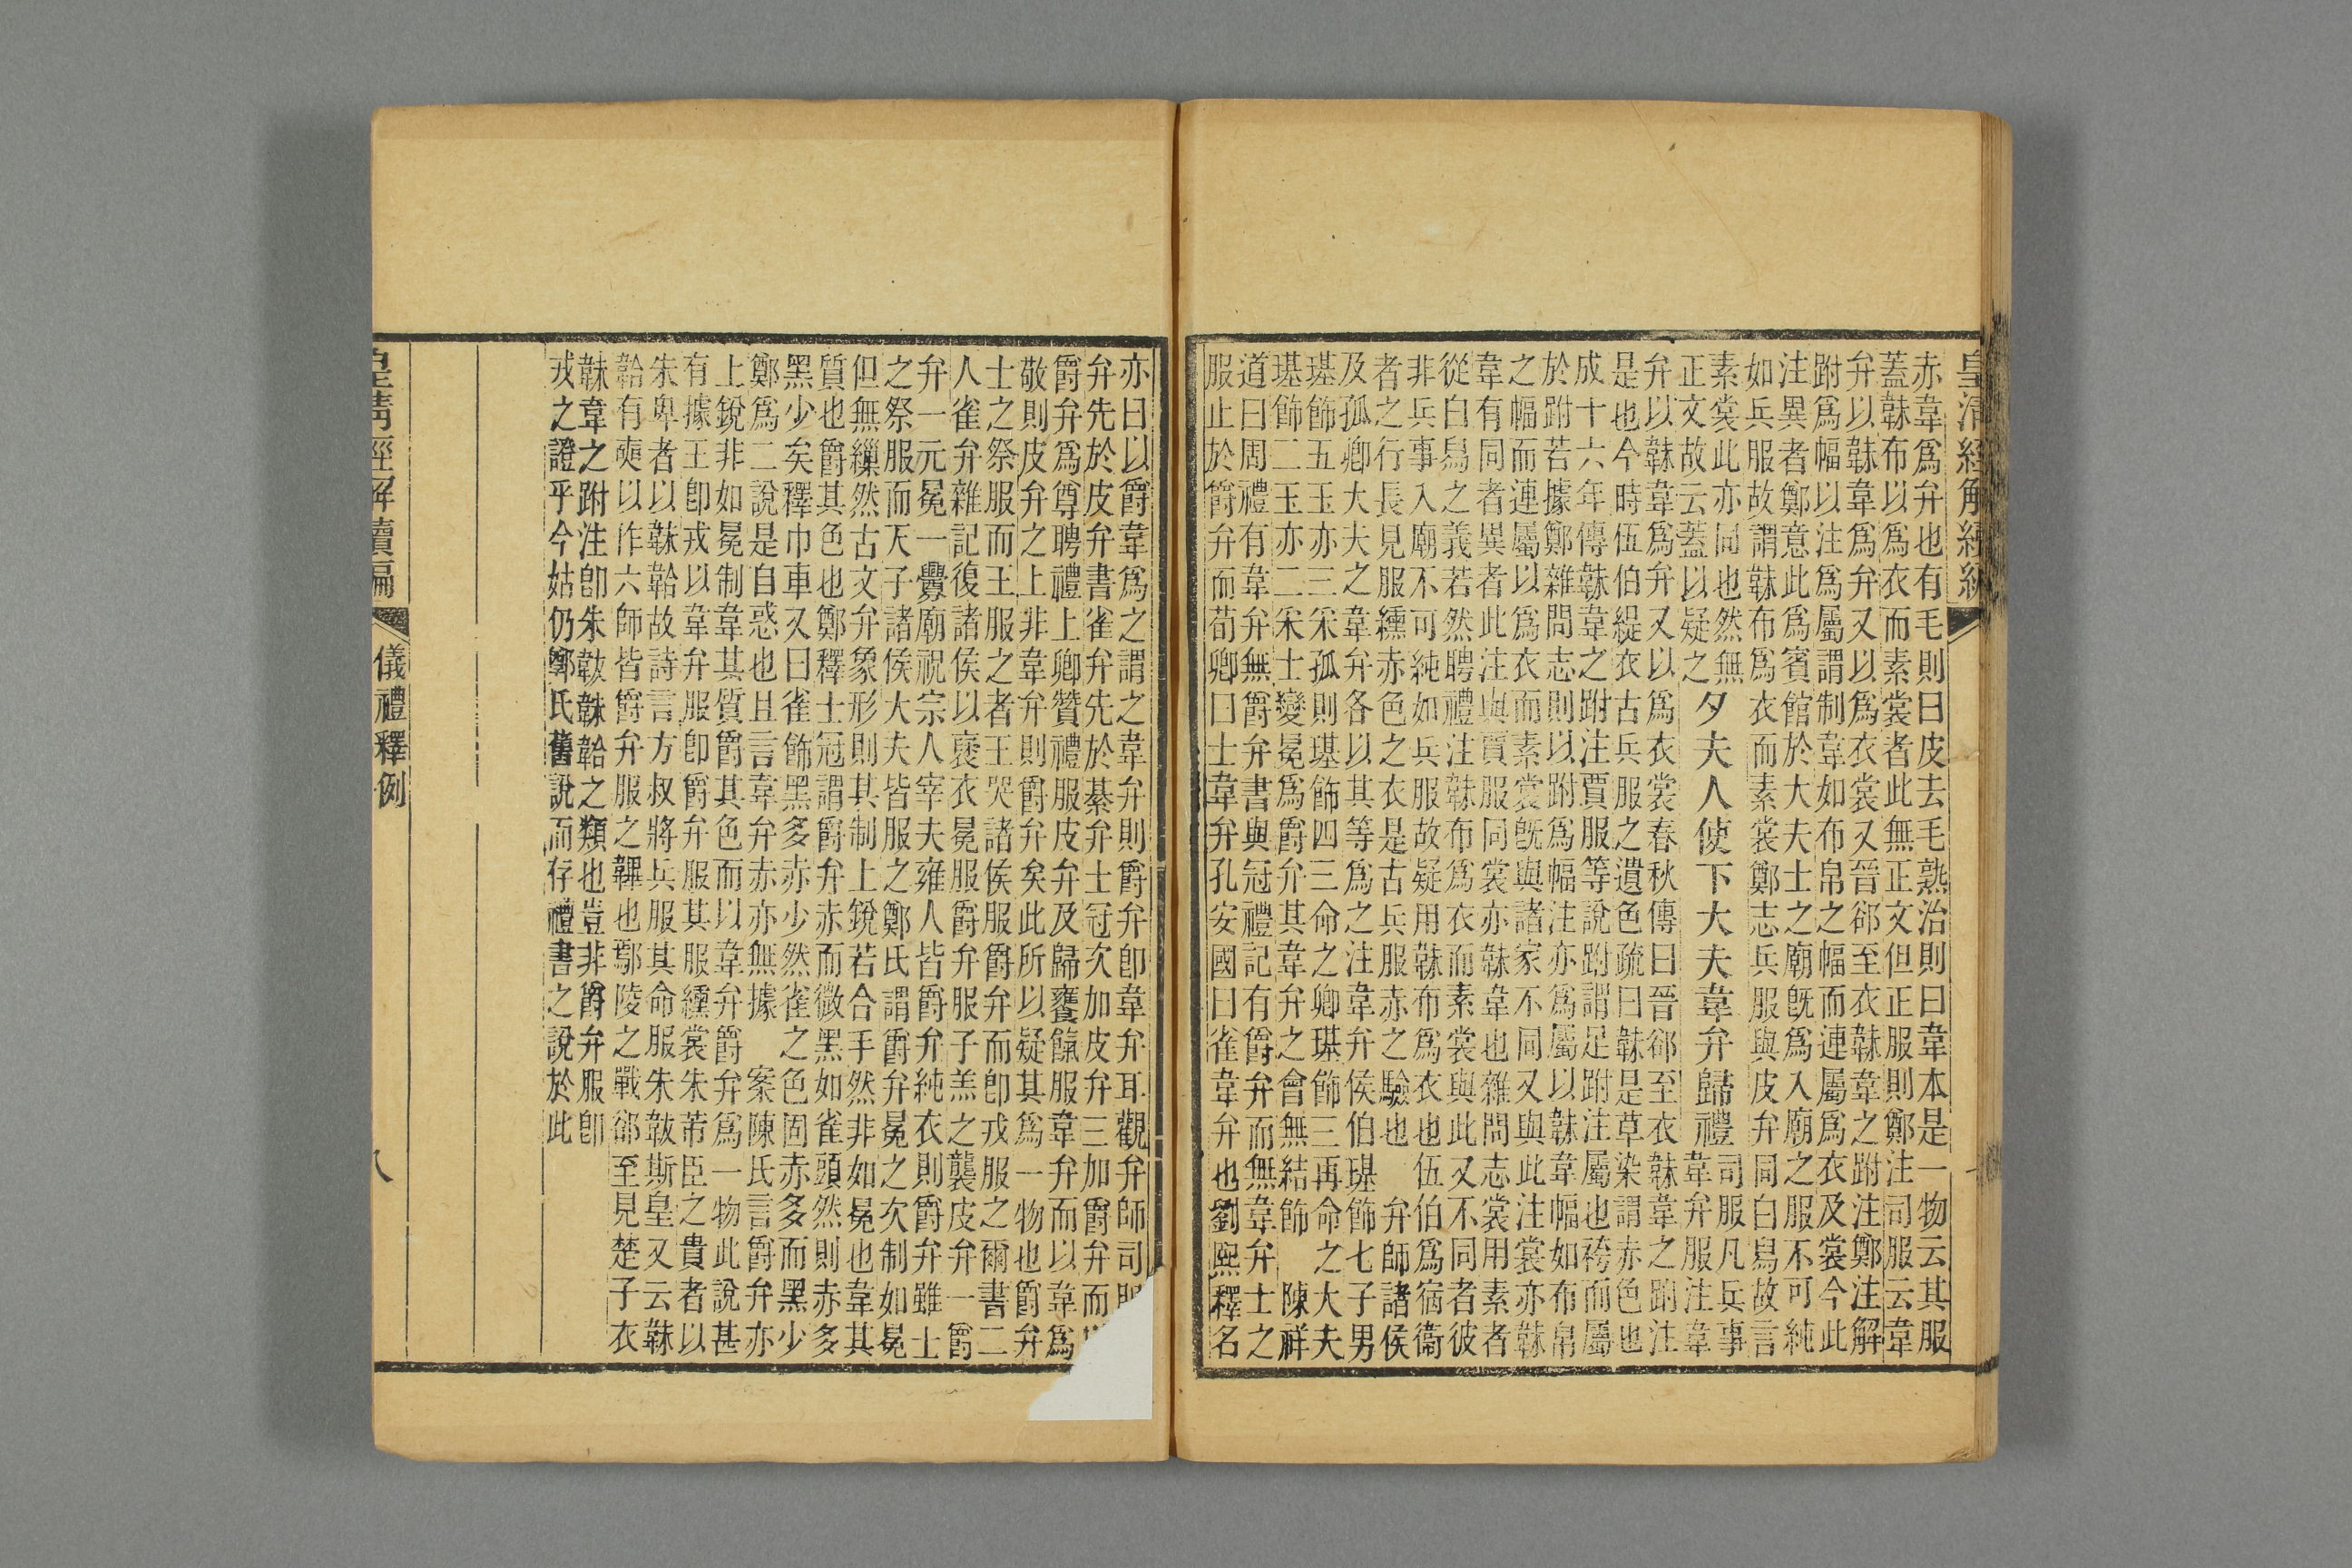 皇清經解續編
赤韋爲弁也有毛則曰皮去毛熟治則曰韋本是一物云其服
蓋韎布以爲衣而素裳者此無正文但正服則鄭注司服云韋
弁以韎韋爲弁又以爲衣裳又晉郤至衣韎韋之跗注鄭注解
跗爲幅以注爲屬謂制韋如布帛之幅而連屬爲衣及裳今此
注異者鄭意此爲賓館於大夫士之廟旣爲入廟之服不可純
如兵服故謂韎布爲衣而素裳鄭志兵服與皮弁同白舄故言
素裳此亦同也然無
正文故云蓋以疑之
夕夫人使下大夫韋弁歸禮
司服凡兵事
韋弁服注韋
弁以韎韋爲弁又以爲衣裳春秋傳曰晉郤至衣韎韋之跗注
是也今時伍伯緹衣古兵服之遺色疏曰韎是草染謂赤色也
成十六年傳韎韋之跗注賈服等說跗謂足跗注屬也袴而屬
於跗若據鄭雜問志則以跗爲幅注亦爲屬以韎韋幅如布帛
之幅而連屬以爲衣而素裳旣與諸家不同又與此注裳亦韎
韋有同者異者此注與賈服同裳亦韎韋也雜問志裳用素者
從白舄之義若然聘禮注韎布爲衣而素裳與此又不同者彼
非兵事入廟不可純如兵服故疑用韎布爲衣也 伍伯爲宿衞
者之行長見服纁赤色之衣是古兵服赤之驗也 弁師諸侯
及孤卿大夫之韋弁各以其等爲之注韋弁侯伯璂飾七子男
璂飾五玉亦三采孤則璂飾四三命之卿璂飾三再命之大夫
璂飾二玉亦二采士變冕爲爵弁其韋弁之會無結飾 陳祥
道曰周禮有韋弁無爵弁書與冠禮記有爵弁而無韋弁士之
服止於爵弁而荀卿曰士韋弁孔安國曰雀韋弁也劉熙釋名
亦曰以爵韋爲之謂之韋弁則爵弁卽韋弁耳觀弁師司
弁先於皮弁書雀弁先於綦弁士冠次加皮弁三加爵弁而
爵弁爲尊聘禮上卿贊禮服皮弁及歸饔餼服韋弁而以韋爲
敬則皮弁之上非韋弁則爵弁矣此所以疑其爲一物也爵弁
士之祭服而王服之者王哭諸侯服爵弁而卽戎服之爾書二
人雀弁雜記復諸侯以襃衣冕服爵弁服子羔之襲皮弁一爵
弁一元冕一釁廟祝宗人宰夫雍人皆爵弁純衣則爵弁雖士
之祭服而天子諸侯大夫皆服之鄭氏謂爵弁冕之次制如冕
但無繅然古文弁象形則其制上銳若合手然非如冕也韋其
質也爵其色也鄭釋士冠謂爵弁赤而微黑如雀頭然則赤多
黑少矣釋巾車又曰雀飾黑多赤少然雀之色固赤多而黑少
鄭爲二說是自惑也且言韋弁赤亦無據 案陳氏言爵弁亦
上銳非如冕制韋其質爵其色而以韋弁爵弁爲一物此說甚
有據王卽戎以韋弁服卽爵弁服其服纁裳朱芾臣之貴者以
朱卑者以韎韐故詩言方叔將兵服其命服朱韍斯皇又云韎
韐有奭以作六師皆爵弁服之韠也鄢陵之戰郤至見楚子衣
韎韋之跗注卽朱韍韎韐之類也豈非爵弁服卽
戎之證乎今姑仍鄭氏舊說而存禮書之說於此
皇清經解續編
儀禮釋例
八